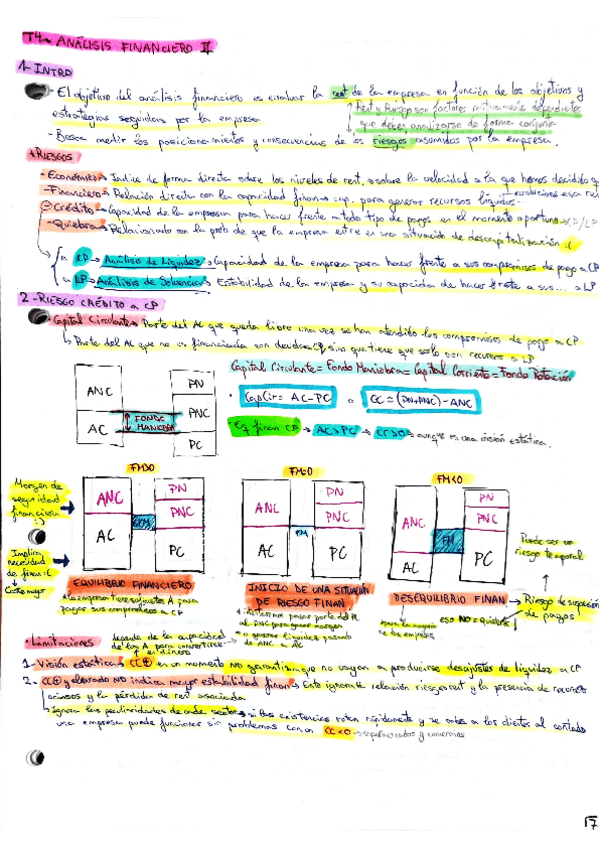 T4.- ANÁLISIS FINANCIERO II
1- INTRO
- El objetivo del análisis financiero es evaluar la rent de la empresa en función de los objetivos y
estrategias seguidas por la empresa
Rent y Riesgo son factores mutuamente dependientes
que deben analizarse de forma conjunta
- Busca medir los posicionamientos y consecuencias de los riesgos asumidos por la empresa.
+RIESGOS
- Económico → Indice de forma directa sobre los niveles de rent, o sobre la velocidad a la que hemos decidido q
evolucione esa rent
- Financiero → Relación directa con la capacidad finan → cap. para generar recursos líquidos
- Crédito → Capacidad de la empresa para hacer frente a todo tipo de pagos en el momento oportuno → CP/LP
- Quiebra → Relacionado con la prob de que la empresa entre en una situación de descapitalización :(
a CP → Análisis de Liquidez → Capacidad de la empresa para hacer frente a sus compromisos de pago a CP
a LP → Análisis de Solvencia → Estabilidad de la empresa y su capacidad de hacer frente a sus... a LP
2- RIESGO CRÉDITO a CP
- Capital Circulante → Parte del AC que queda libre una vez se han atendido los compromisos de pago a CP
→ Parte del AC que no es financiada con deudas CP sino que tiene que serlo con recursos a LP
Capital Circulante = Fondo Maniobra = Capital Corriente = Fondo Rotación
ANC
AC
FONDO
MANIOBRA
PN
PNC
PC
• CapCir = AC - PC
o CC = (PN+PNC) - ANC
Eq finan CP → AC > PC → CC > 0 → aunque es una visión estática.
FM>0
FM=0
FM<0
Margen de
seguridad
financiera
:)
Implica
necesidad
de finan :(
Coste mayor
ANC
AC
FM
PN
PNC
PC
ANC
AC
FM
PN
PNC
PC
ANC
AC
FM
PN
PNC
PC
Puede ser un
riesgo temporal
EQUILIBRIO FINANCIERO
La empresa tiene suficientes A para
pagar sus compromisos a CP
INICIO DE UNA SITUACIÓN
DE RIESGO FINAN
DESEQUILIBRIO FINAN
Riesgo de suspensión
de pagos
eso NO = Quiebra
• Limitaciones
depende de la capacidad
de los A para convertirse
en dinero
1- Visión estática → CC⊕ en un momento NO garantiza que no vayan a producirse desajustes de liquidez a CP
2- CC⊕ y elevado NO indica mayor estabilidad finan → Este ignora la relación riesgo-rent y la presencia de recursos
ociosos y la pérdida de rent asociada
→ Ignora las peculiaridades de cada sector → si las existencias rotan rápidamente y se cobra a los clientes al contado
una empresa puede funcionar sin problemas con un CC<0 → supermercados y
17